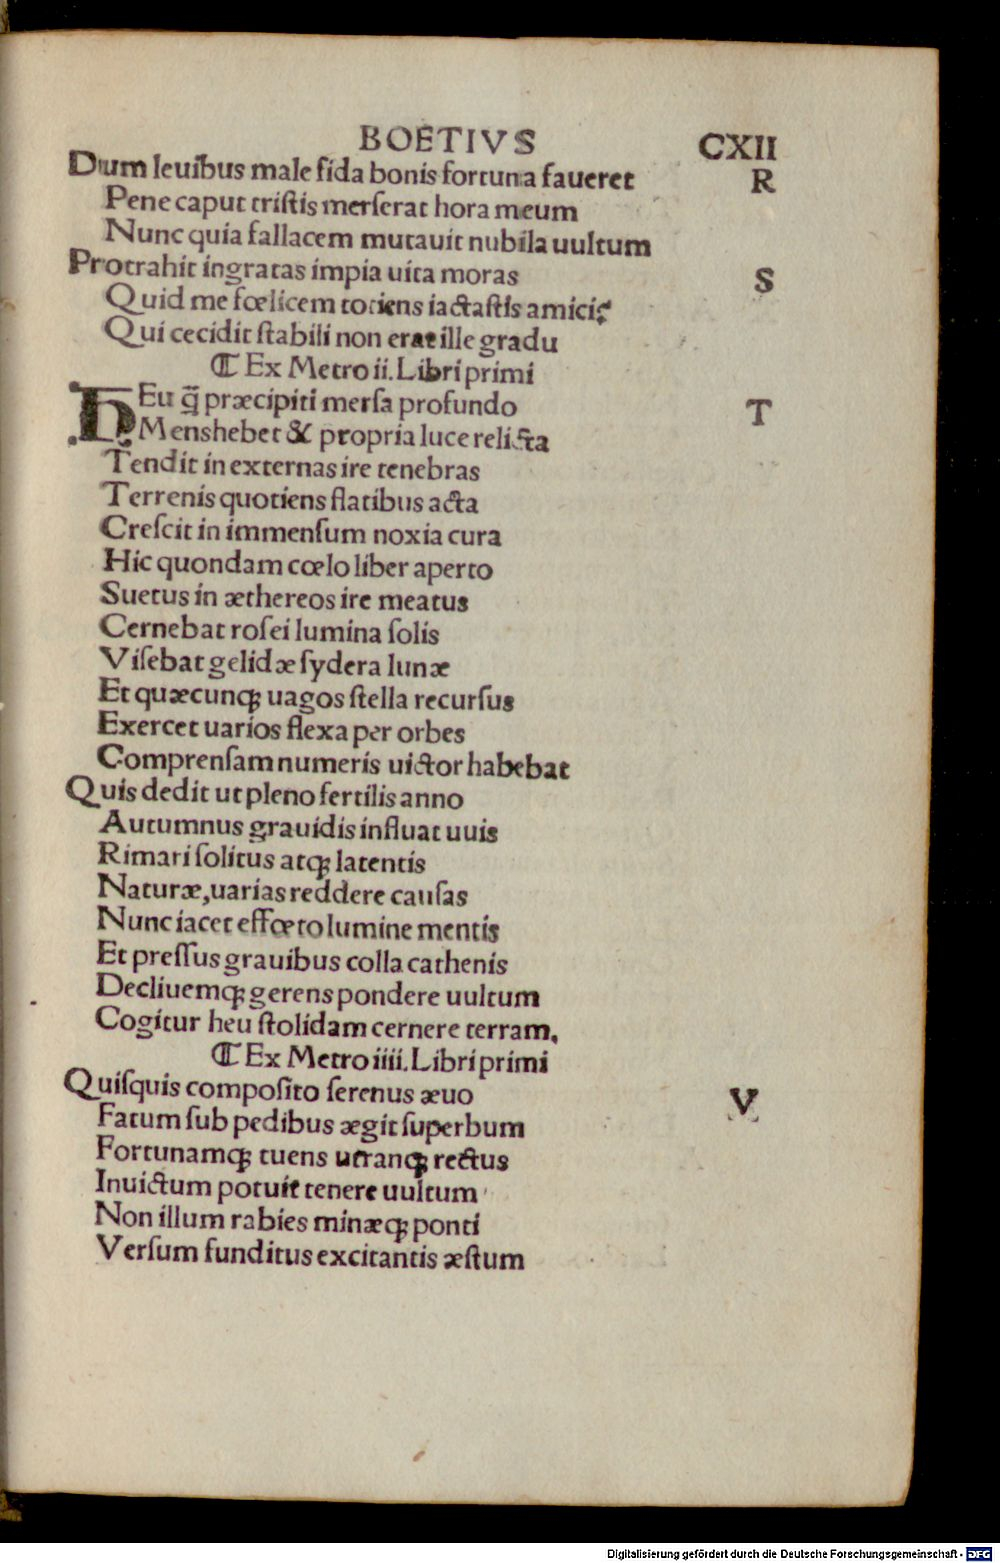 BOETIVS CXII
Dum leuibus male fida bonis fortuna faueret R
Pene caput tristis merserat hora meum
Nunc quia fallacem mutauit nubila uultum
Protrahit ingratas impia uita moras S
Quid me fœlicem totiens iactastis amici?
Qui cecidit stabili non erat ille gradu
⁋ Ex Metro ii. Libri primi
HEu q̃ præcipiti mersa profundo T
Menshebet & propria luce relicta
Tendit in externas ire tenebras
Terrenis quotiens flatibus acta
Crescit in immensum noxia cura
Hic quondam cœlo liber aperto
Suetus in æthereos ire meatus
Cernebat rosei lumina solis
Visebat gelidæ sydera lunæ
Et quæcunqꝫ uagos stella recursus
Exercet uarios flexa per orbes
Comprensam numeris uictor habebat
Quis dedit ut pleno fertilis anno
Autumnus grauidis influat uuis
Rimari solitus atqꝫ latentis
Naturæ, uarias reddere causas
Nunc iacet effœto lumine mentis
Et pressus grauibus colla cathenis
Decliuemqꝫ gerens pondere uultum
Cogitur heu stolidam cernere terram.
⁋ Ex Metro iiii. Libri primi
Quisquis composito serenus æuo V
Fatum sub pedibus ægit superbum
Fortunamqꝫ tuens utranqꝫ rectus
Inuictum potuit tenere uultum
Non illum rabies minæqꝫ ponti
Versum funditus excitantis æstum
Digitalisierung gefördert durch die Deutsche Forschungsgemeinschaft - DFG